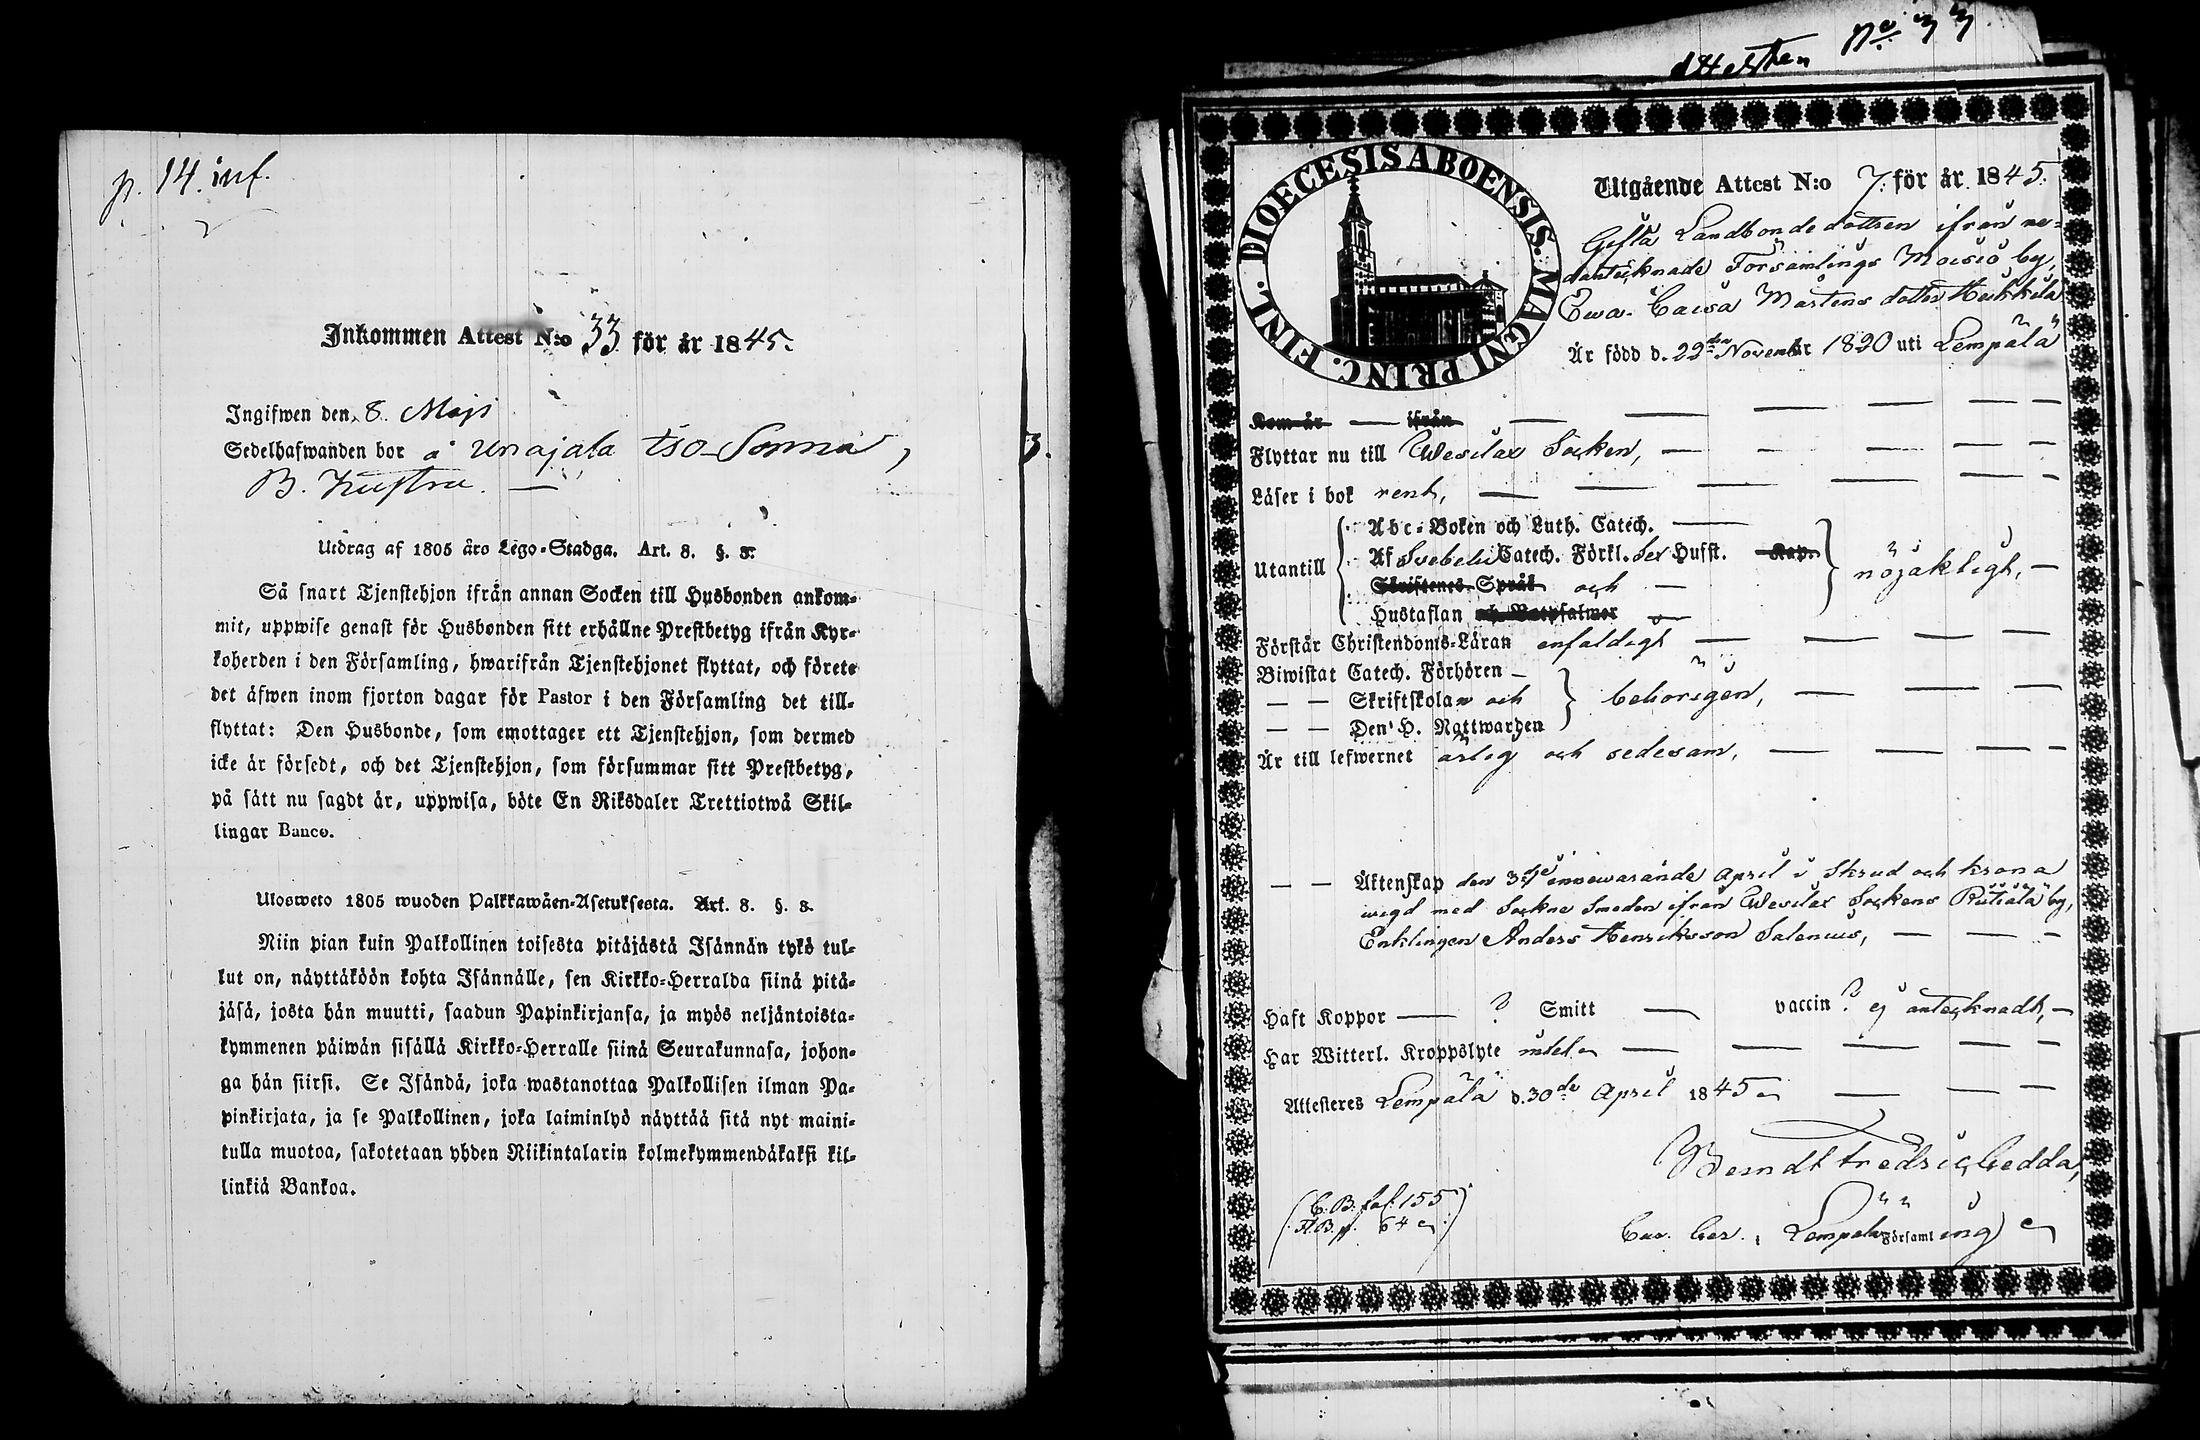 p. 14. inf.
Inkommen Attest N:o 33 för år 1845.
Ingifwen den 8 Maji
Sedelhafwanden bor å Urajala Iso-Sonna,
B. Kustru.
Utdrag af 1805 års Lego-Stadga. Art. 8. §. 8.
Så snart Tjenstehjon ifrån annan Socken till Husbonden ankom-
mit, uppwise genast för Husbonden sitt erhållne Prestbetyg ifrån Kyr-
koherden i den Församling, hwarifrån Tjenstehjonet flyttat, och förete
det äfwen inom fjorton dagar för Pastor i den Församling det till-
flyttat: Den Husbonde, som emottager ett Tjenstehjon, som dermed
icke är försedt, och det Tjenstehjon, som försummar sitt Prestbetyg,
på sätt nu sagdt är, uppwisa, böte En Riksdaler Trettiotwå Skil-
lingar Banco.
Ulosweto 1805 wuoden Palkkawäen-Asetuksesta. Art. 8. §. 8.
Niin pian kuin Palkollinen toisesta pitäjästä Isännän tykö tul-
lut on, näyttäköön kohta Isännälle, sen Kirkko-Herralda siinä pitä-
jäsä, josta hän muutti, saadun Papinkirjansa, ja myös neljäntoista-
kymmenen päiwän sisällä Kirkko-Herralle siinä Seurakunnasa, johon-
ga hän siirsi. Se Isändä, joka wastanottaa Palkollisen ilman Pa-
pinkirjata, ja se Palkollinen, joka laiminlyö näyttää sitä nyt maini-
tulla muotoa, sakotetaan yhden Riikintalarin kolmekymmendäkaksi kil-
linkiä Bankoa.
3.
Attesten No 33
DIOECESIS ABOENSIS. MAGNI PRINC. FINL.
Utgående Attest N:o 7. för år 1845.
Gifta Landbondedottren ifrån ne-
dantecknade Församlings Moisio by,
Ewa Caisa Mårtens dotter Heikkilä
Är född d. 22den Novembr 1820 uti Lempälä
Kom år — ifrån —
Flyttar nu till Wesilax Socken, —
Läser i bok rent, —
Utantill
Abc-Boken och Luth. Catech. —
Af Svebelii Catech. Förkl. Sex Hufst. Kap.
Skriftenes Språk och —
Hustaflan och Botpsalmer —
nöjaktligt, —
Förstår Christendoms-Läran enfaldigt —
Biwistat Catech. Förhören —
— — Skriftskolan och
— — Den H. Nattwarden
behörigen, —
Är till lefwernet ärlig och sedesam, —
— — Äktenskap den 3dje innewarande April i Skrud och krona
wigd med Sockne Smeden ifrån Wesilax Sockens Rutiälä by,
Enklingen Anders Henriksson Salenius, —
Haft Koppor — ? Smitt — vaccin ? ej antecknadt, —
Har Witterl. Kroppslyte intet —
Attesteres Lempälä d. 30de April 1845
Berndt Fredric Gedda,
(C.B. fol. 155
H.B. p. 64)
Lempälä Församling